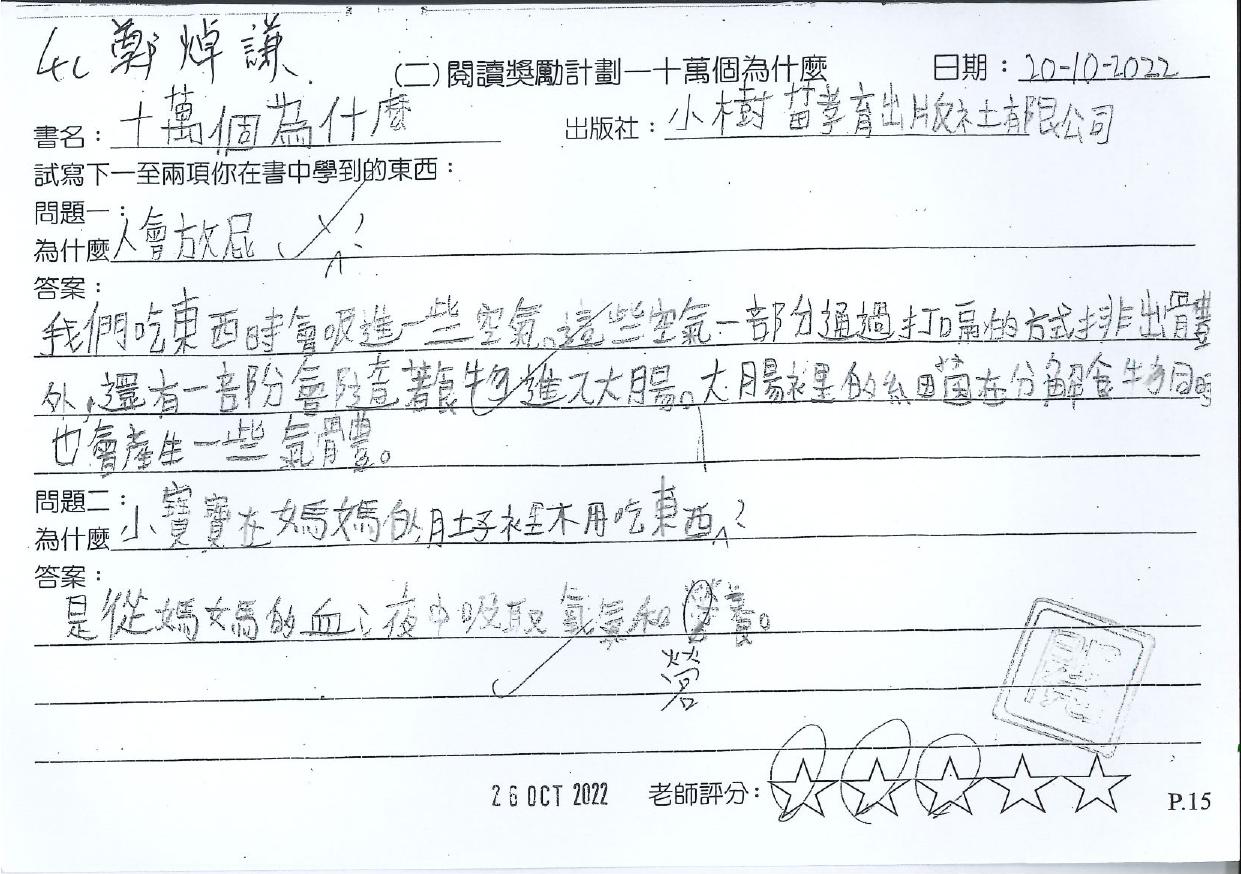 4C 鄭焯謙
(二)閱讀獎勵計劃—十萬個為什麼 日期：20-10-2022
書名：十萬個為什麼 出版社：小樹苗教育出版社有限公司
試寫下一至兩項你在書中學到的東西：
問題一：
為什麼人會放屁？
答案：
我們吃東西時會吸進一些空氣,這些空氣一部分通過打嗝的方式排出體
外,還有一部份會隨着食物進入大腸。大腸裡的細菌在分解食物同時
也會產生一些氣體。
問題二：
為什麼小寶寶在媽媽的肚子裡不用吃東西？
答案：
是從媽媽的血液中吸取氧氣和營養。
營
26 OCT 2022 老師評分：
P.15